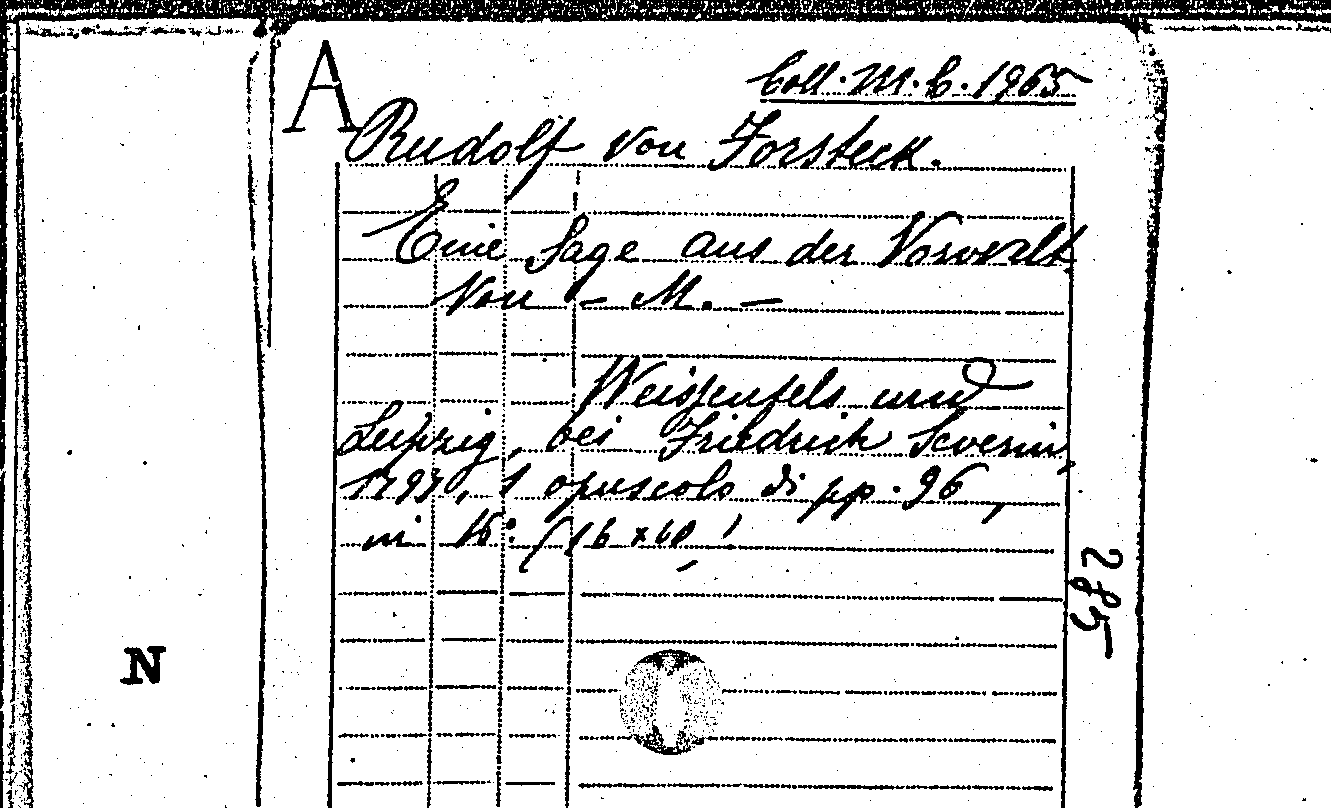 A
Coll. M. C. 1965
Rudolf von Forsteck.
Eine Sage aus der Vorwelt.
Von – M. –
Weissenfels und
Leipzig, bei Friedrich Severin,
1797, 1 opuscolo di pp. 96,
in 16: (16 x 10)
285
N